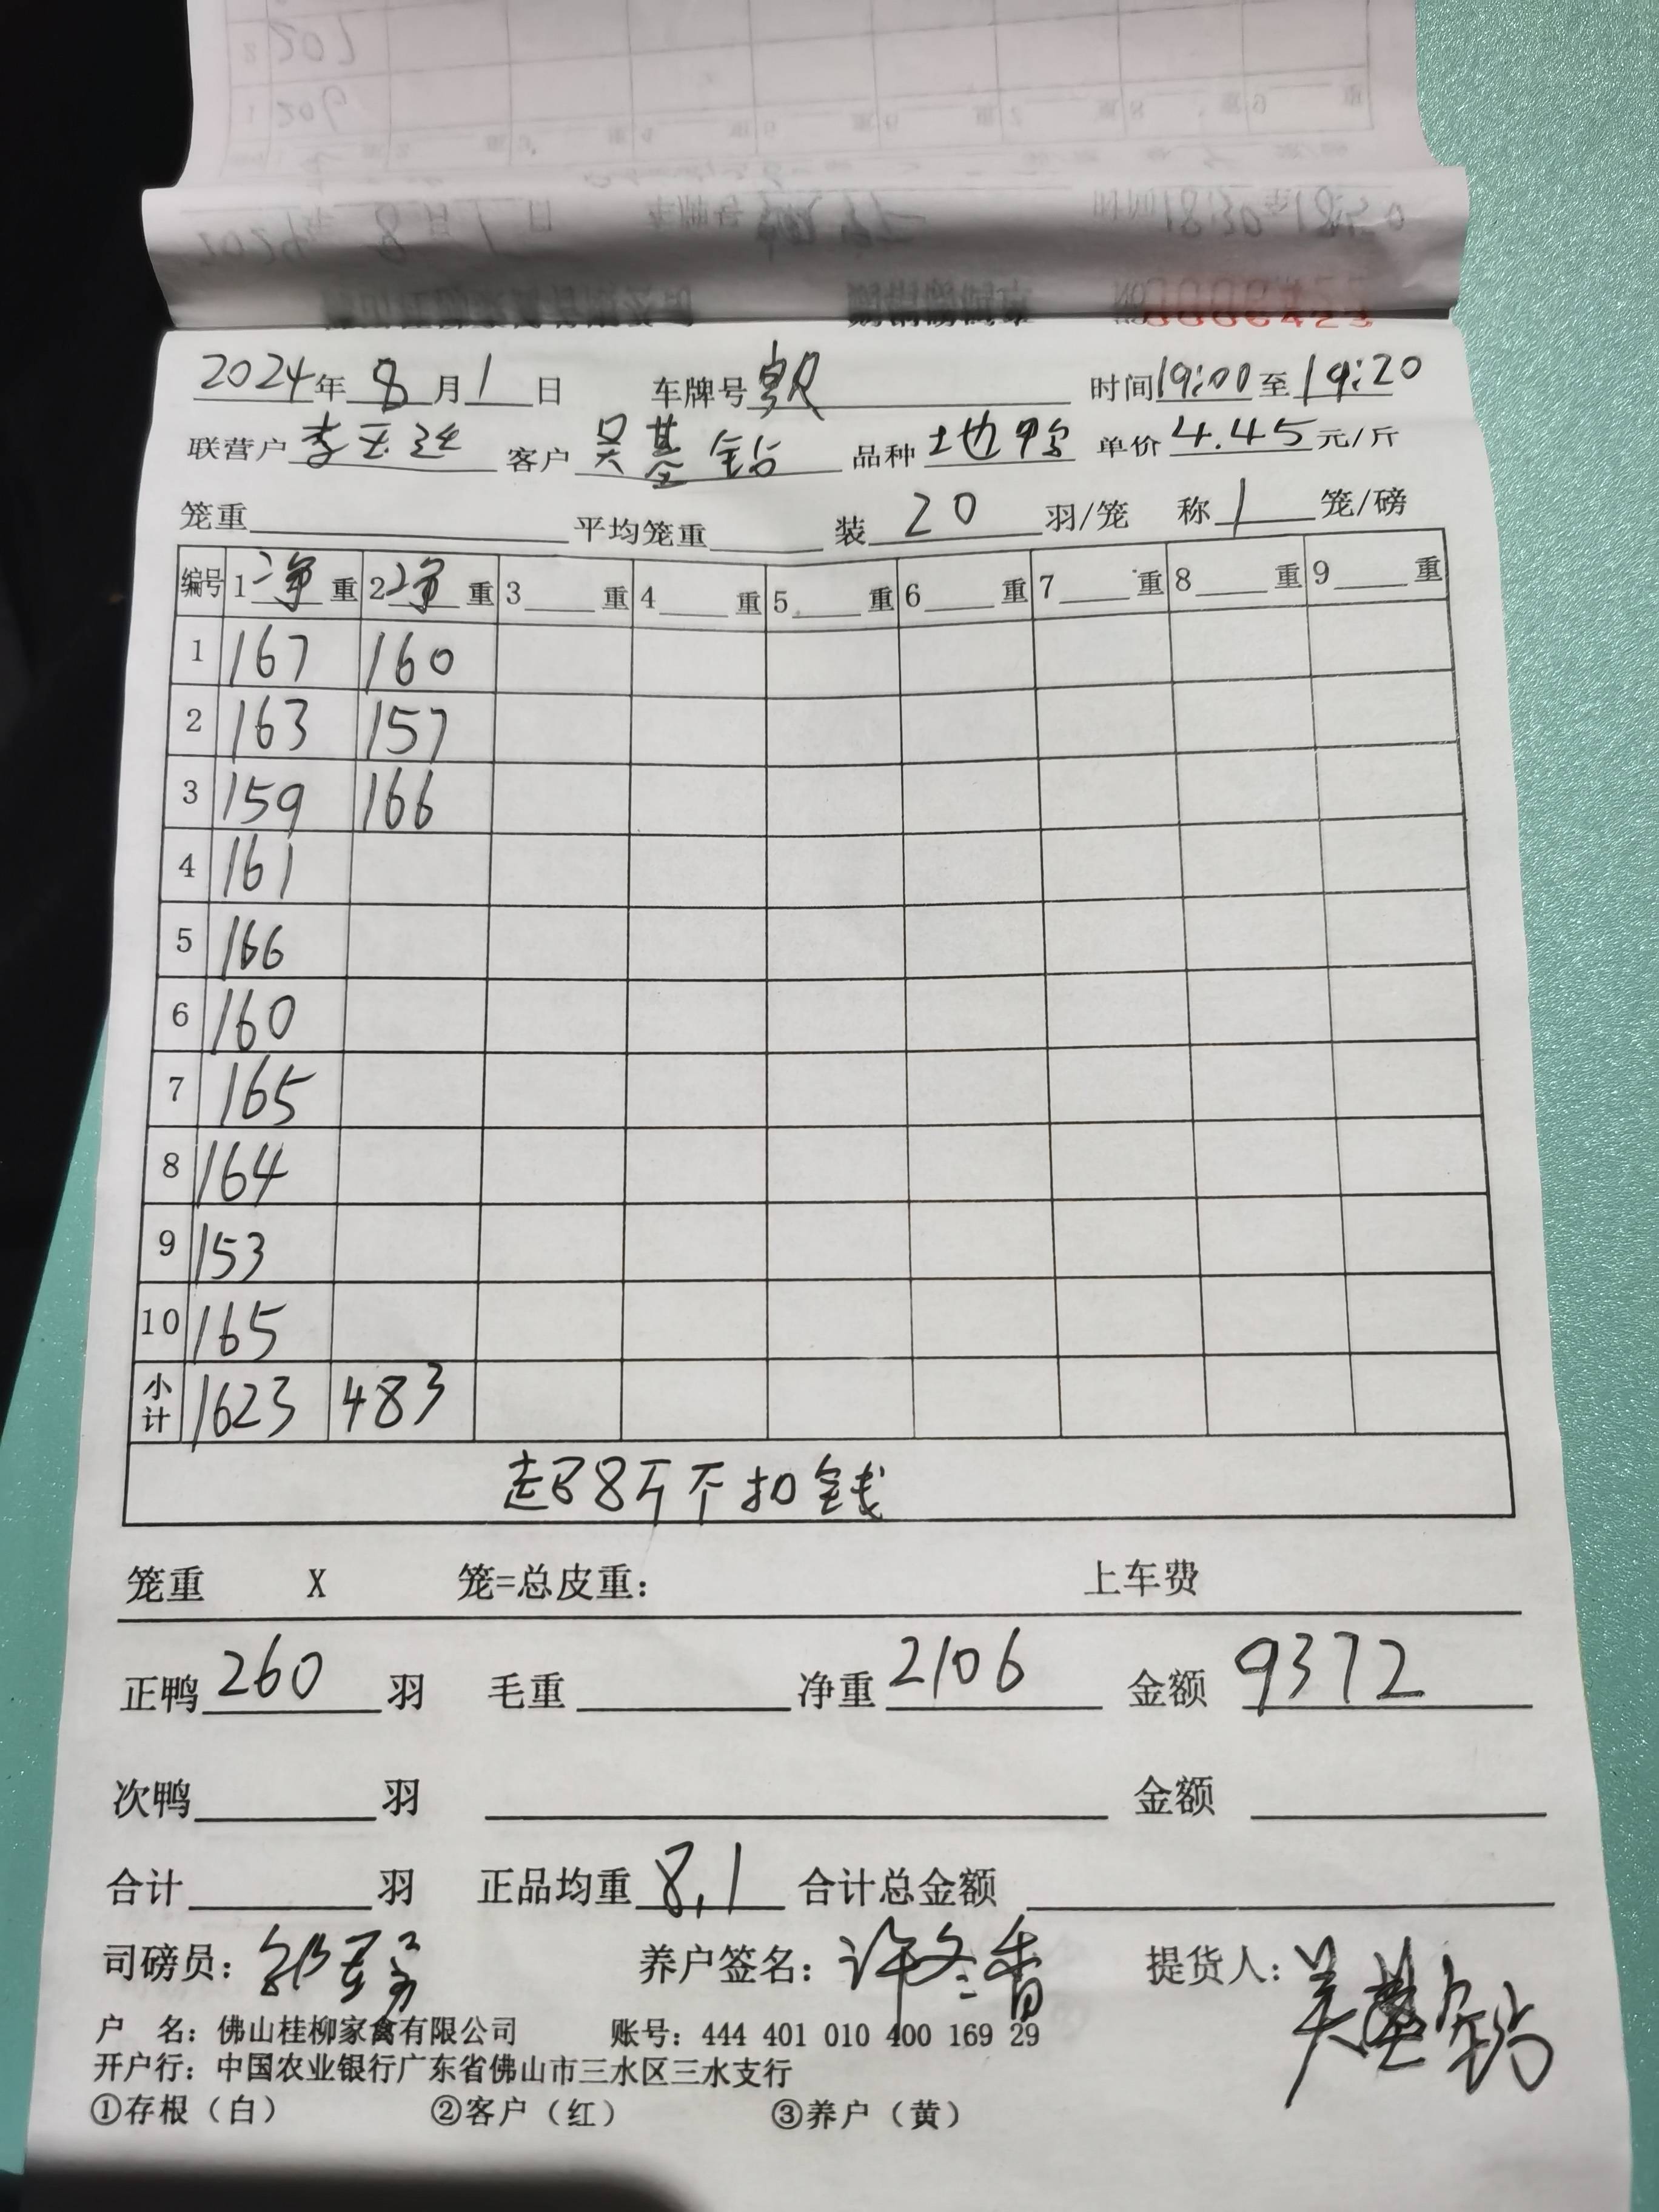 2024年 8月1日 车牌号 时间19:00至19:20
联营户 李玉连 客户 吴基铅 品种 土也鸭 单价 4.45元/斤
笼重 平均笼重 装 20 羽/笼 称 1 笼/磅
编号 1 净 重 2 净 重 3 重 4 重 5 重 6 重 7 重 8 重 9 重
1 167 160
2 163 157
3 159 166
4 161
5 166
6 160
7 165
8 164
9 153
10 165
小计 1623 483
超8斤不扣钱
笼重 X 笼=总皮重: 上车费
正鸭 260 羽 毛重 净重 2106 金额 9372
次鸭 羽 金额
合计 羽 正品均重 8.1 合计总金额
司磅员: 养户签名: 许冬香 提货人:
户 名: 佛山桂柳家禽有限公司 账号: 444 401 010 400 169 29
开户行: 中国农业银行广东省佛山市三水区三水支行
①存根（白） ②客户（红） ③养户（黄）